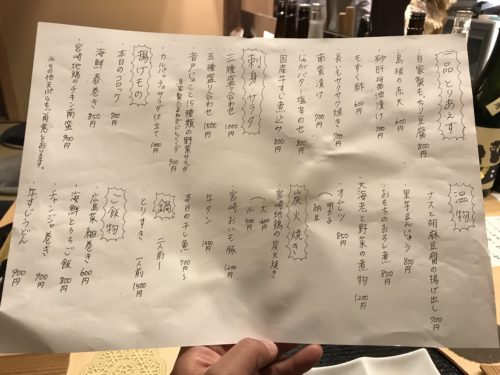 一品とりあえず
・自家製もっちり豆腐 800円
・島根の赤天 600円
・砂肝醤油漬け 700円
・もずく酢 600円
・長いもサクサク焼き 700円
・南蛮漬け 700円
・じゃがバター塩辛のせ 800円
・国産牛すじ煮込み 800円
刺身・サラダ
・三種盛り合わせ 1000円
・五種盛り合わせ 1500円
・音戸じゃこと15種類の野菜サラダ 900円
自家製たまねぎドレッシング
・カルパッチョサラダ仕立て 1000円
揚げもの
・本日のコロッケ
・海鮮春巻き 850円
・宮崎地鶏のチキン南蛮 900円
温物
・ナスと胡麻豆腐の揚げ出し 700円
・里芋まんじゅう 800円
・おもちのおろし煮 850円
・大海老と野菜の煮物 1200円
・オムレツ 850円
明太子
納豆
炭火焼き
・宮崎地鶏の炭火焼き
大 1600円
小 900円
・宮崎おいも豚 1200円
・牛タン 1500円
・本日の干し魚 700円〜
鍋 二人前〜
・とりすき 一人前 1500円
ご飯物
・広島菜細巻き 600円
・海鮮とろろご飯 800円
・チャンジャ巻き 900円
・牛すじうどん 900円